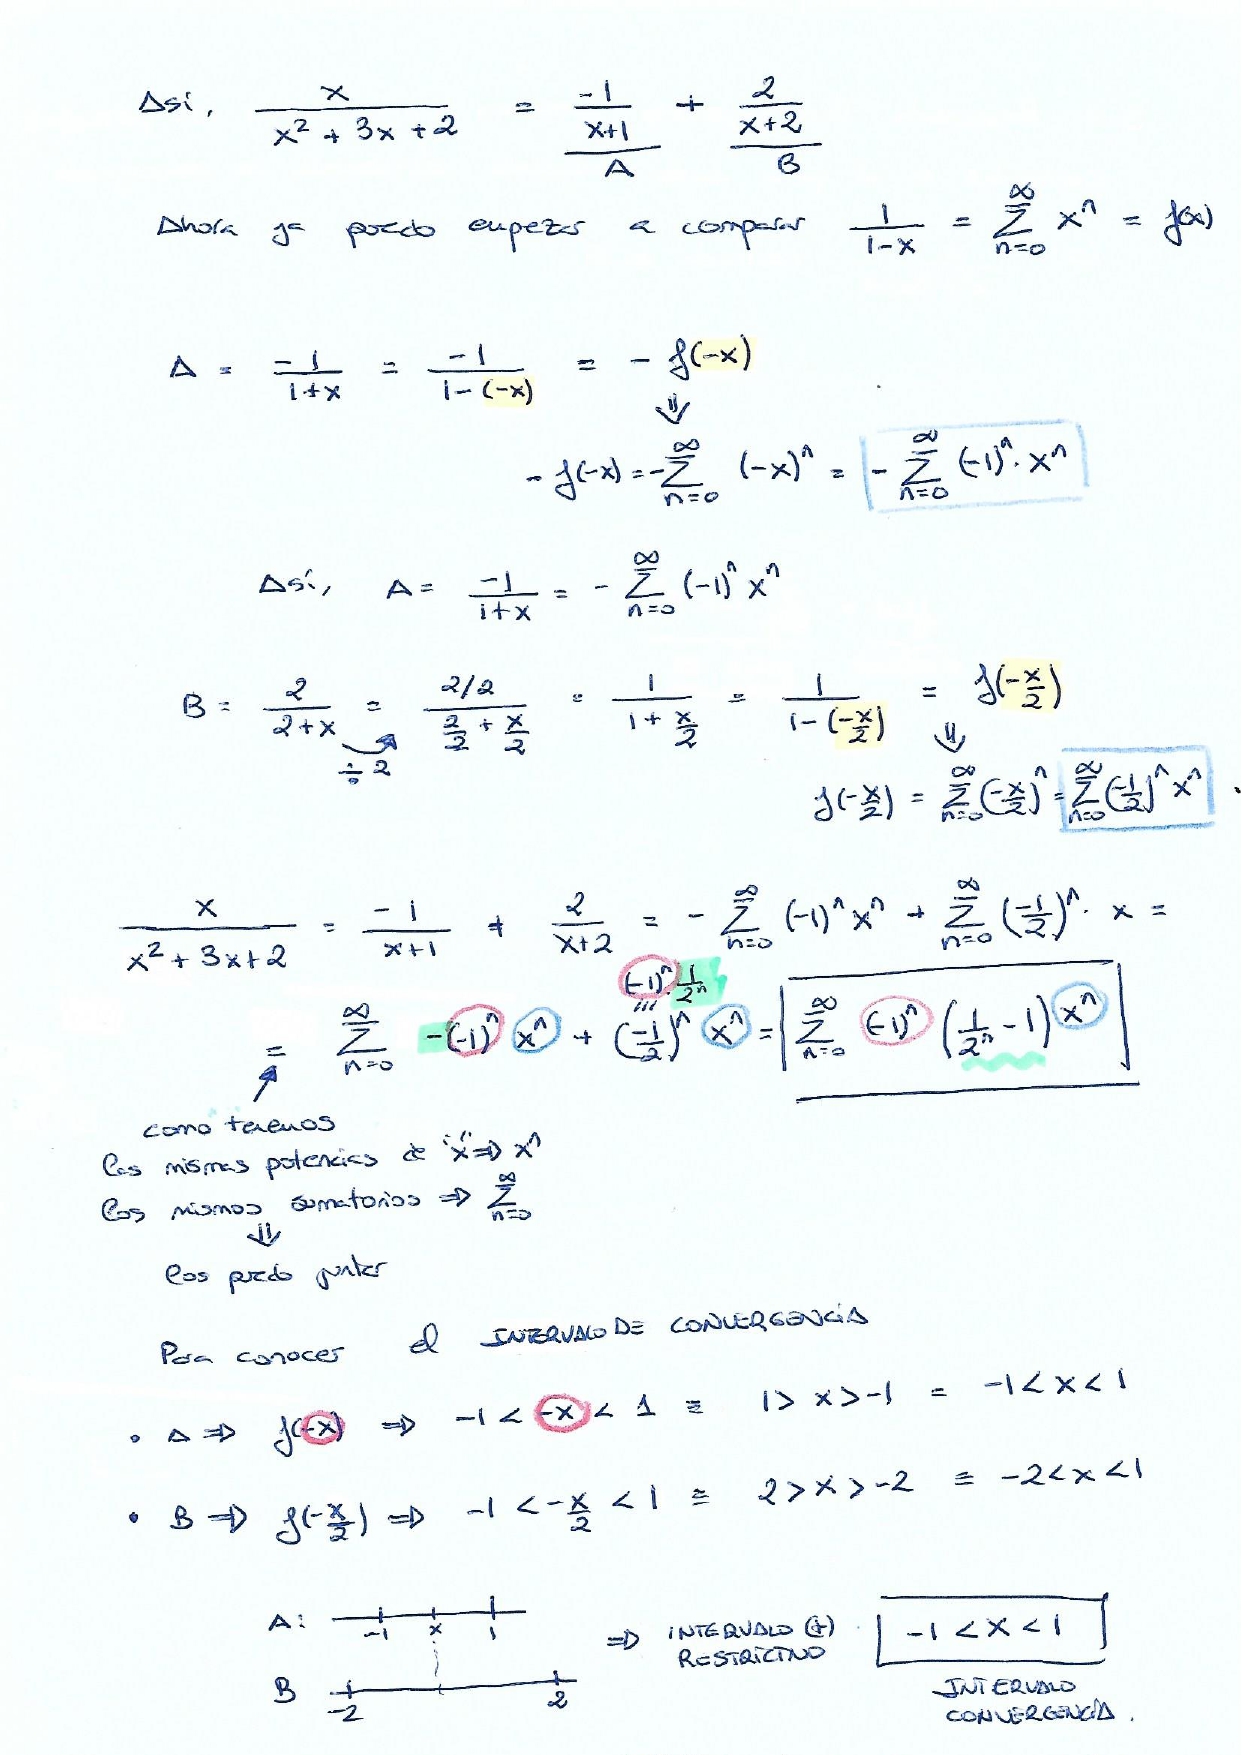 Así, x/(x² + 3x + 2) = (-1/(x+1))/A + (2/(x+2))/B
Ahora ya puedo empezar a comparar 1/(1-x) = ∑_{n=0}^{∞} x^n = f(x)
A = -1/(1+x) = -1/(1-(-x)) = - f(-x)
⇓
- f(-x) = -∑_{n=0}^{∞} (-x)^n = - ∑_{n=0}^{∞} (-1)^n · x^n
Así, A = -1/(1+x) = - ∑_{n=0}^{∞} (-1)^n x^n
B = 2/(2+x) = (2/2)/(2/2 + x/2) = 1/(1 + x/2) = 1/(1-(-x/2)) = f(-x/2)
÷ 2 ⇓
f(-x/2) = ∑_{n=0}^{∞} (-x/2)^n = ∑_{n=0}^{∞} (-1/2)^n x^n
x/(x² + 3x + 2) = -1/(x+1) + 2/(x+2) = - ∑_{n=0}^{∞} (-1)^n x^n + ∑_{n=0}^{∞} (-1/2)^n · x =
(-1)^n · 1/2^n
= ∑_{n=0}^{∞} -(-1)^n x^n + (-1/2)^n x^n = ∑_{n=0}^{∞} (-1)^n (1/2^n - 1) x^n
como tenemos
las mismas potencias de "x" ⇒ x^n
los mismos sumatorios ⇒ ∑_{n=0}^{∞}
⇓
los puedo juntar
Para conocer el INTERVALO DE CONVERGENCIA
• A ⇒ f(-x) ⇒ -1 < -x < 1 ≡ 1 > x > -1 = -1 < x < 1
• B ⇒ f(-x/2) ⇒ -1 < -x/2 < 1 ≡ 2 > x > -2 ≡ -2 < x < 1
A: -1 x 1 ⇒ INTERVALO (+) RESTRICTIVO -1 < x < 1
B -2 2 INTERVALO CONVERGENCIA.